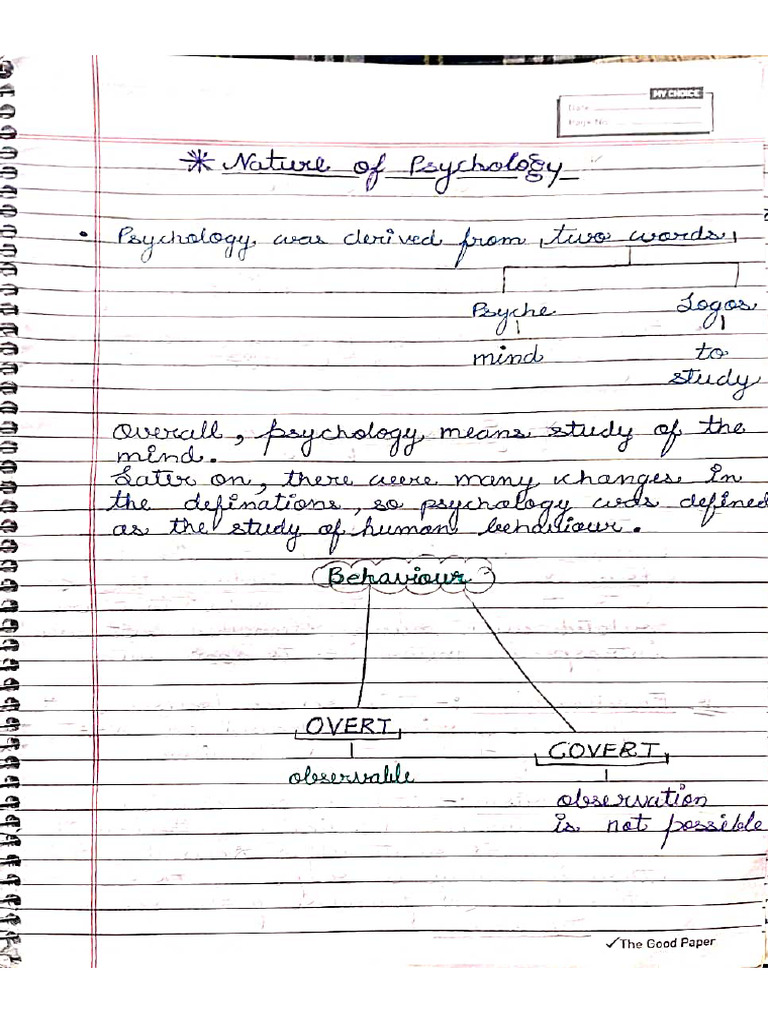 MY CHOICE
Date
Page No.
* Nature of Psychology
• Psychology was derived from two words
Psyche Logos
mind to
study
Overall, psychology means study of the
mind.
Later on, there were many changes In
the definations, so psychology was defined
as the study of human behaviour.
Behaviour
OVERT
COVERT
observable
observation
is not possible
✓The Good Paper